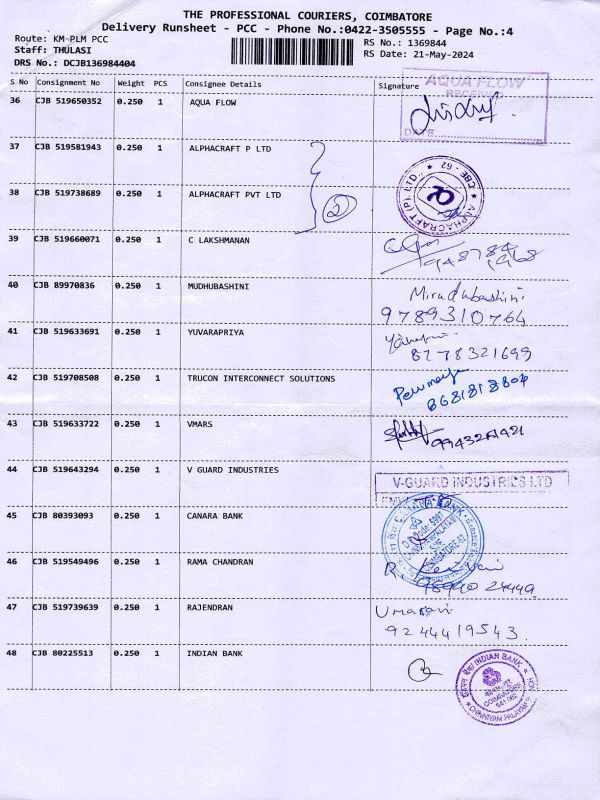 THE PROFESSIONAL COURIERS, COIMBATORE
Delivery Runsheet - PCC - Phone No.:0422-3505555 - Page No.:4
Route: KM-PLM PCC RS No.: 1369844
Staff: THULASI RS Date: 21-May-2024
DRS No.: DCJB136984404
S No Consignment No Weight PCS Consignee Details Signature
36 CJB 519650352 0.250 1 AQUA FLOW
AQUA FLOW
DATE
37 CJB 519581943 0.250 1 ALPHACRAFT P LTD
38 CJB 519738689 0.250 1 ALPHACRAFT PVT LTD
2
ALPHACRAFT (P) LTD., * CBE - 62 *
39 CJB 519660071 0.250 1 C LAKSHMANAN
40 CJB 89970836 0.250 1 MUDHUBASHINI
Mirudhubashini
9789310764
41 CJB 519633691 0.250 1 YUVARAPRIYA
8778321699
42 CJB 519708508 0.250 1 TRUCON INTERCONNECT SOLUTIONS
43 CJB 519633722 0.250 1 VMARS
44 CJB 519643294 0.250 1 V GUARD INDUSTRIES
V-GUARD INDUSTRIES LTD
45 CJB 80393093 0.250 1 CANARA BANK
CANARA BANK
46 CJB 519549496 0.250 1 RAMA CHANDRAN
47 CJB 519739639 0.250 1 RAJENDRAN
Umarani
9244419543
48 CJB 80225513 0.250 1 INDIAN BANK
INDIAN BANK
COIMBATORE
641 062